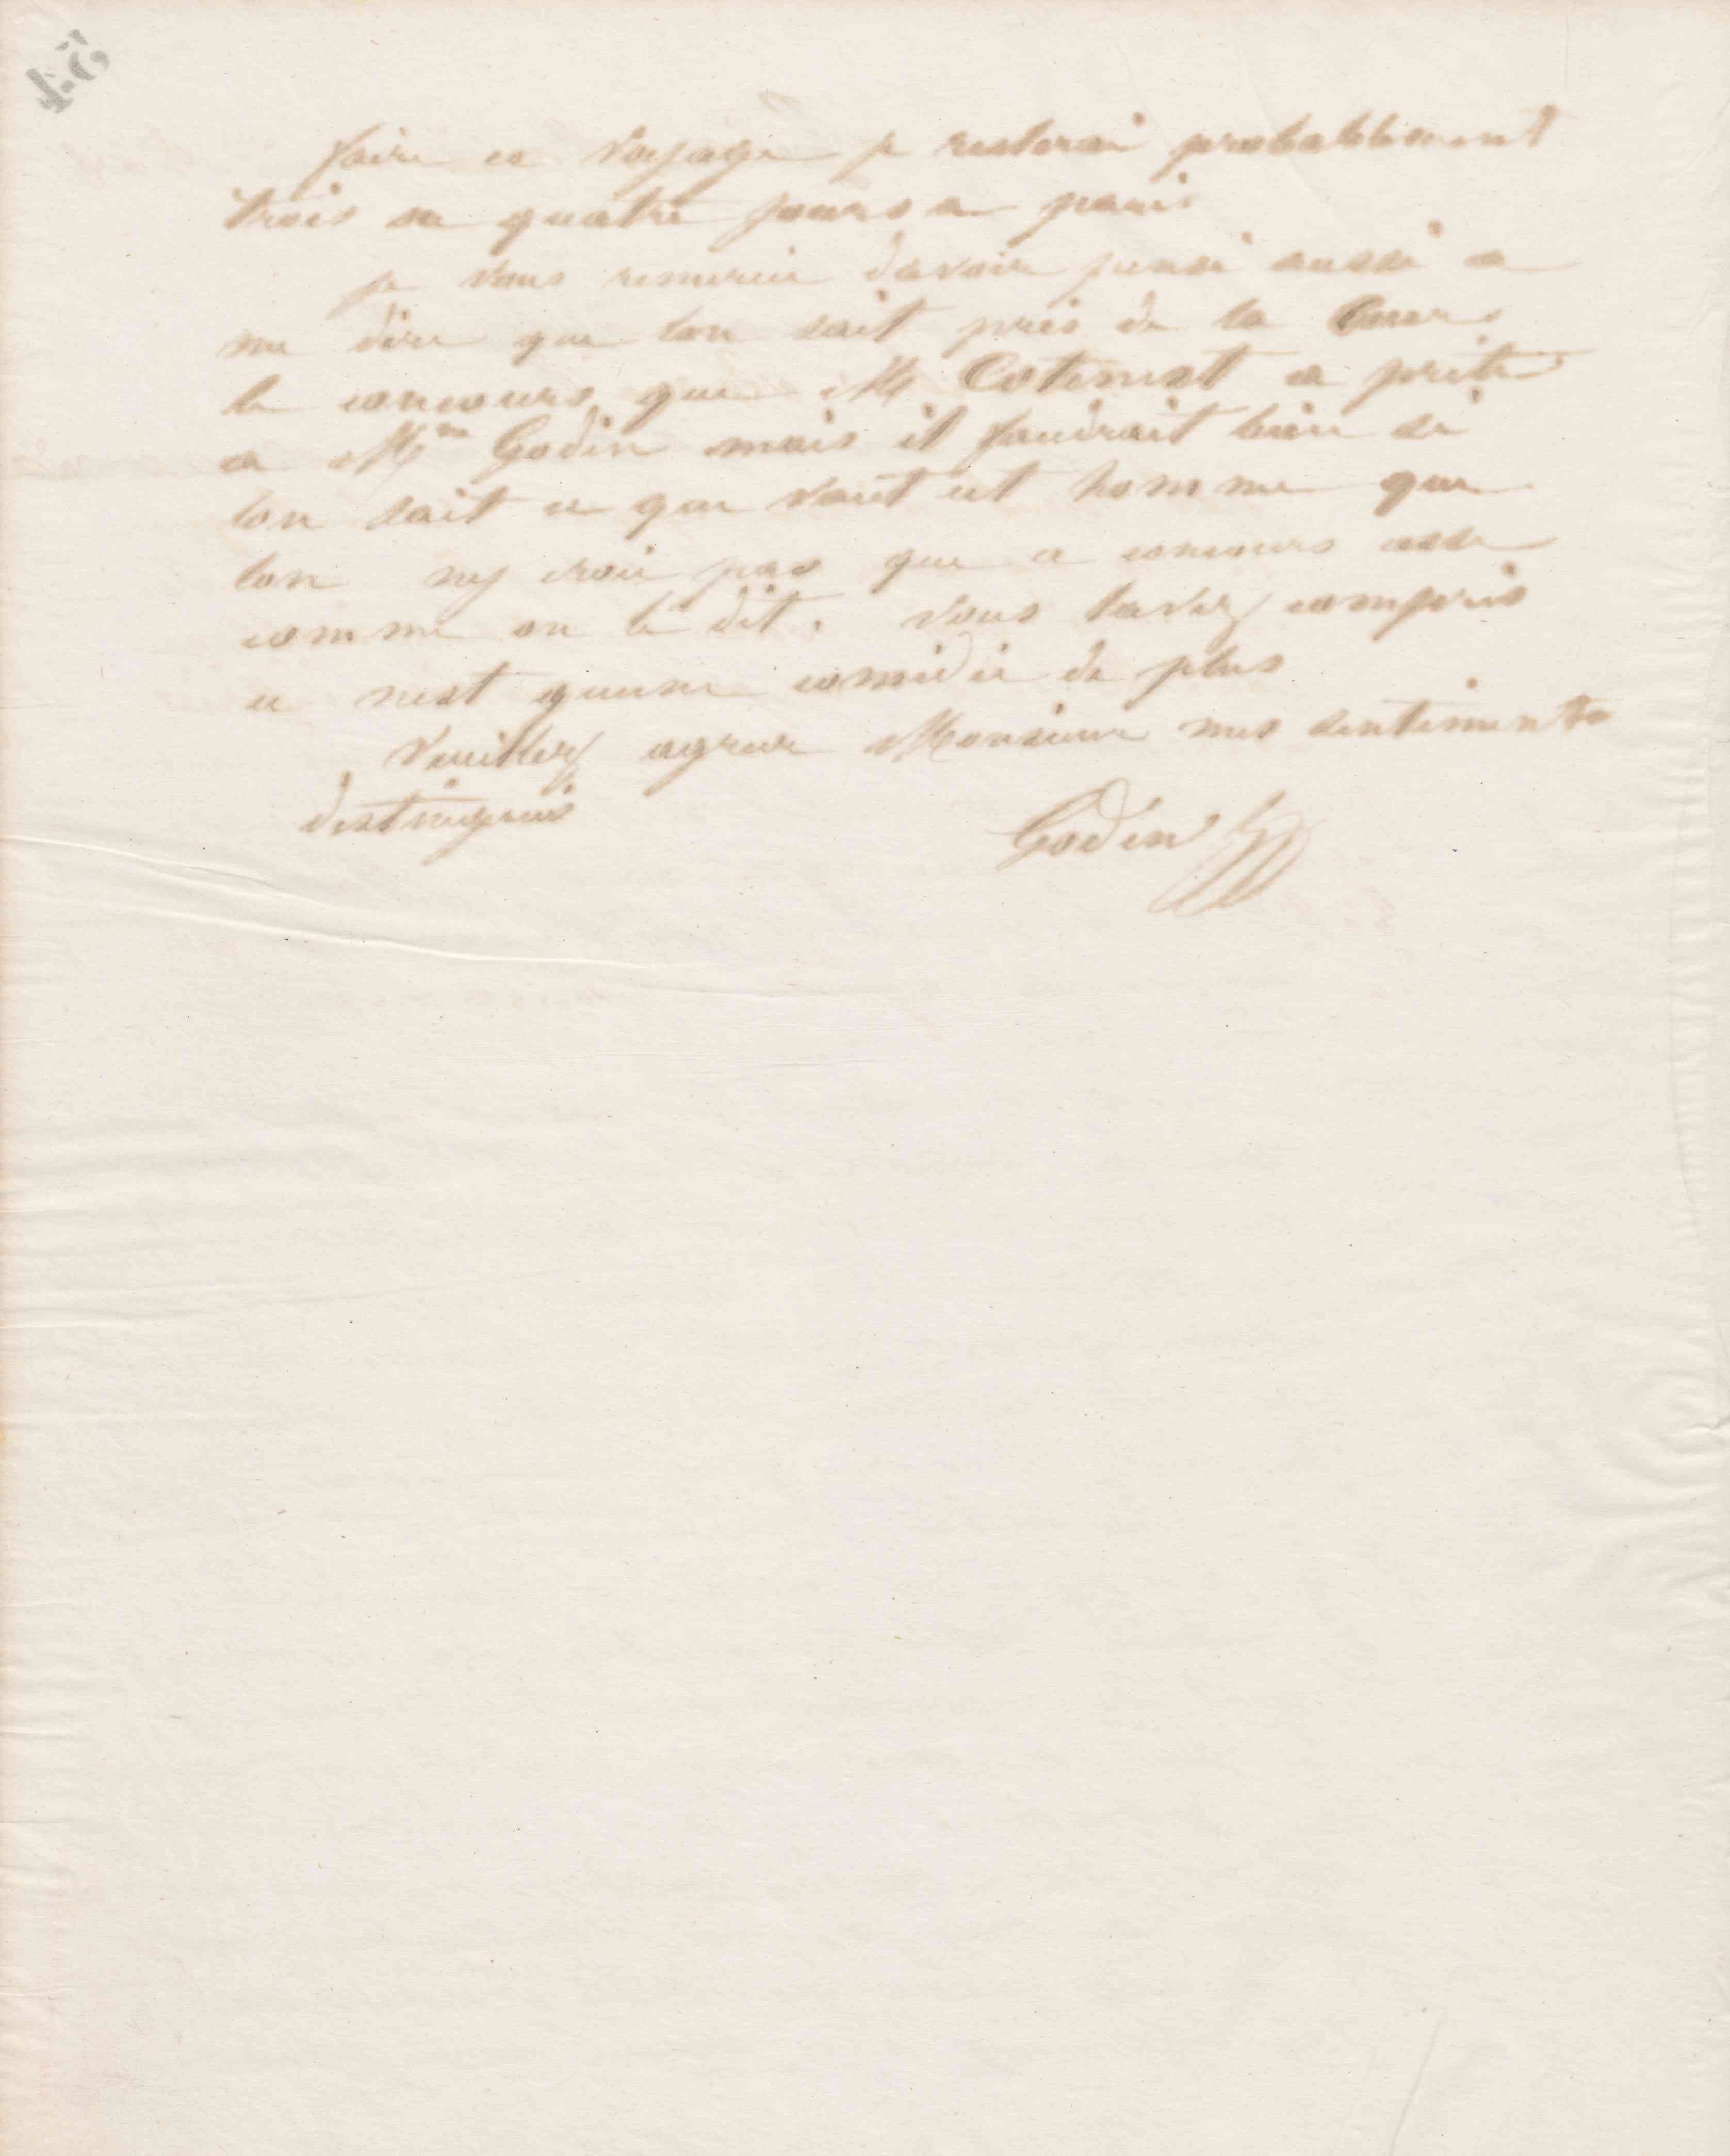 45
faire ce voyage je resterai probablement
trois ou quatre jours a paris
je vous remercie davoir pensé aussi a
me dire que lon sait près de la Cour
le concours que M Cotenest a prêté
a Mme Godin mais il faudrait bien si
lon sait ce que vaut cet homme que
lon ny croie pas que ce concours
comme on le dit. vous lavez compris
ce nest quune comédie de plus
Veuillez agréer Monsieur mes sentiments
distingués
Godin